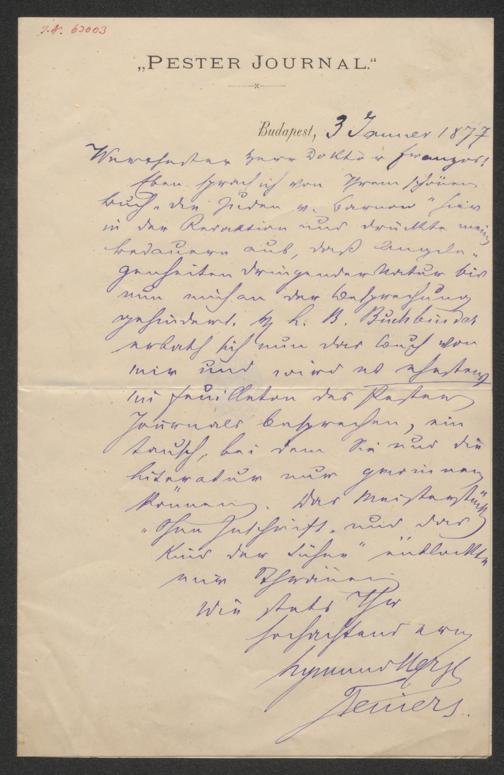 J.N. 63003
„PESTER JOURNAL.“
Budapest, 3 Jänner 1877
Werthester Herr Doktor Franzos!
Eben sprach ich von Ihrem schönen
Buch „die Juden v. Barnow“ hier
in der Redaktion und drückte mein
Bedauern aus, daß Angele-
genheiten dringender Natur bis
nun mich an der Besprechung
gehindert. H B. Buchbinder
erbath sich nun das Buch von
mir und wird es ehestens
im Feuilleton des Pester
Journals besprechen, ein
Tausch, bei dem Sie und die
Literatur nur gewinnen
können. Das Meisterstück
„Ohne Inschrift“ und das
Kind der Sühne“ entlockte
mir Thränen
Wie stets Ihr
hochachtend erg
Sigmund